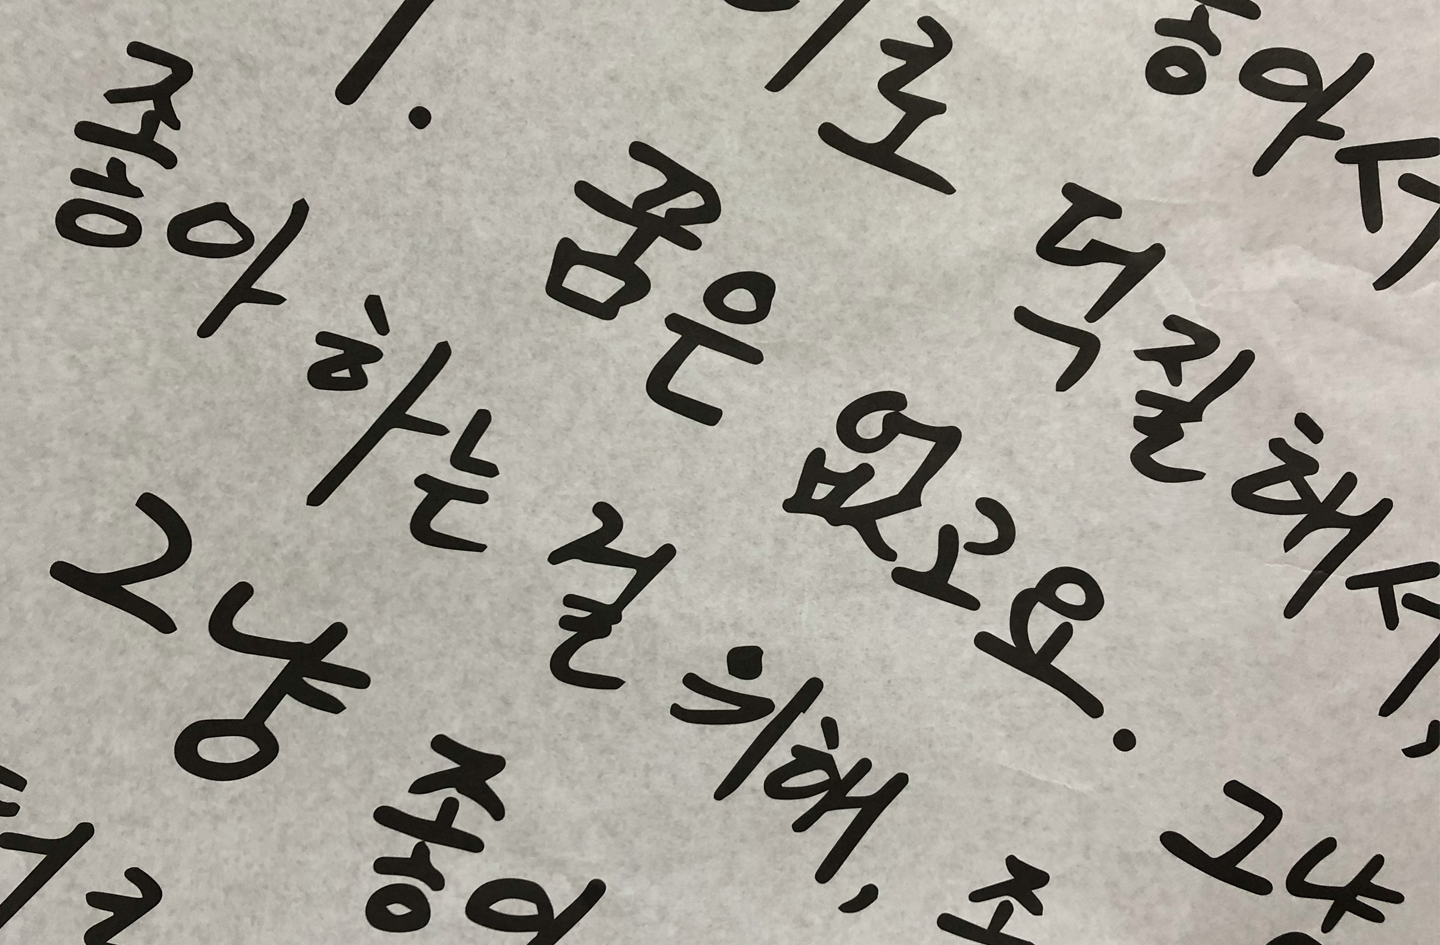 좋아서
로 덕질해서,
꿈은 없고요. 그냥
좋아하는 걸 위해,
그냥 좋아